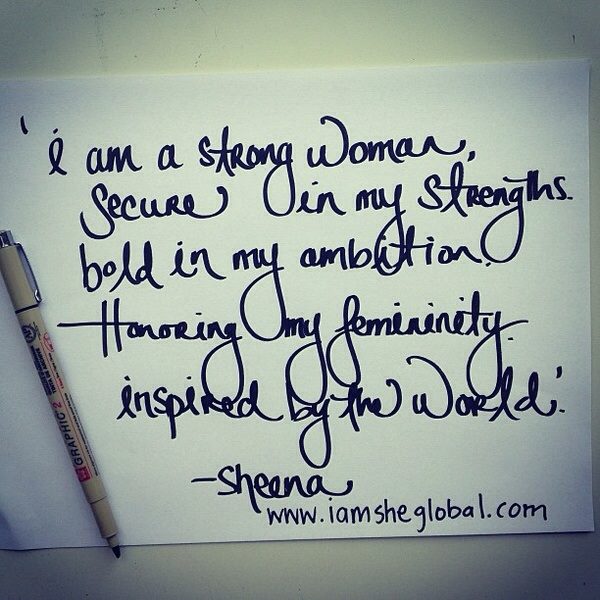 'I am a strong woman,
Secure in my strengths.
bold in my ambition.
Honoring my femininity.
inspired by the world.'
-Sheena
www.iamsheglobal.com
GRAPHIC 2